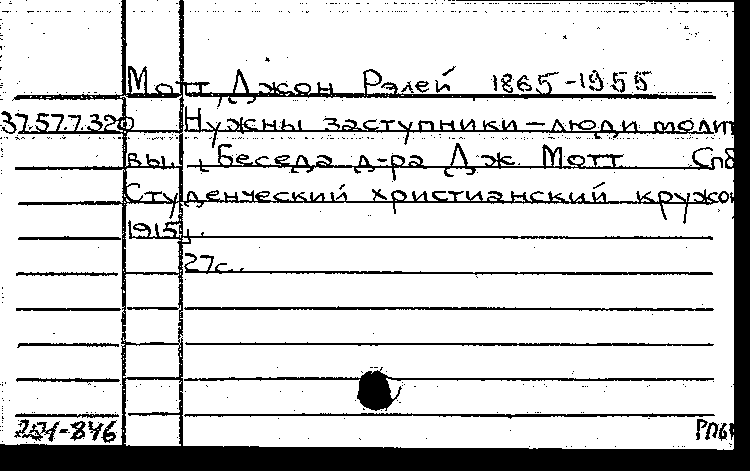 Мотт, Джон Рэлей 1865-1955
37.57.7.320 Нужны заступники – люди молит
вы. Беседа д-ра Дж. Мотт Спб
Студенческий христианский кружок
1915.
27с.